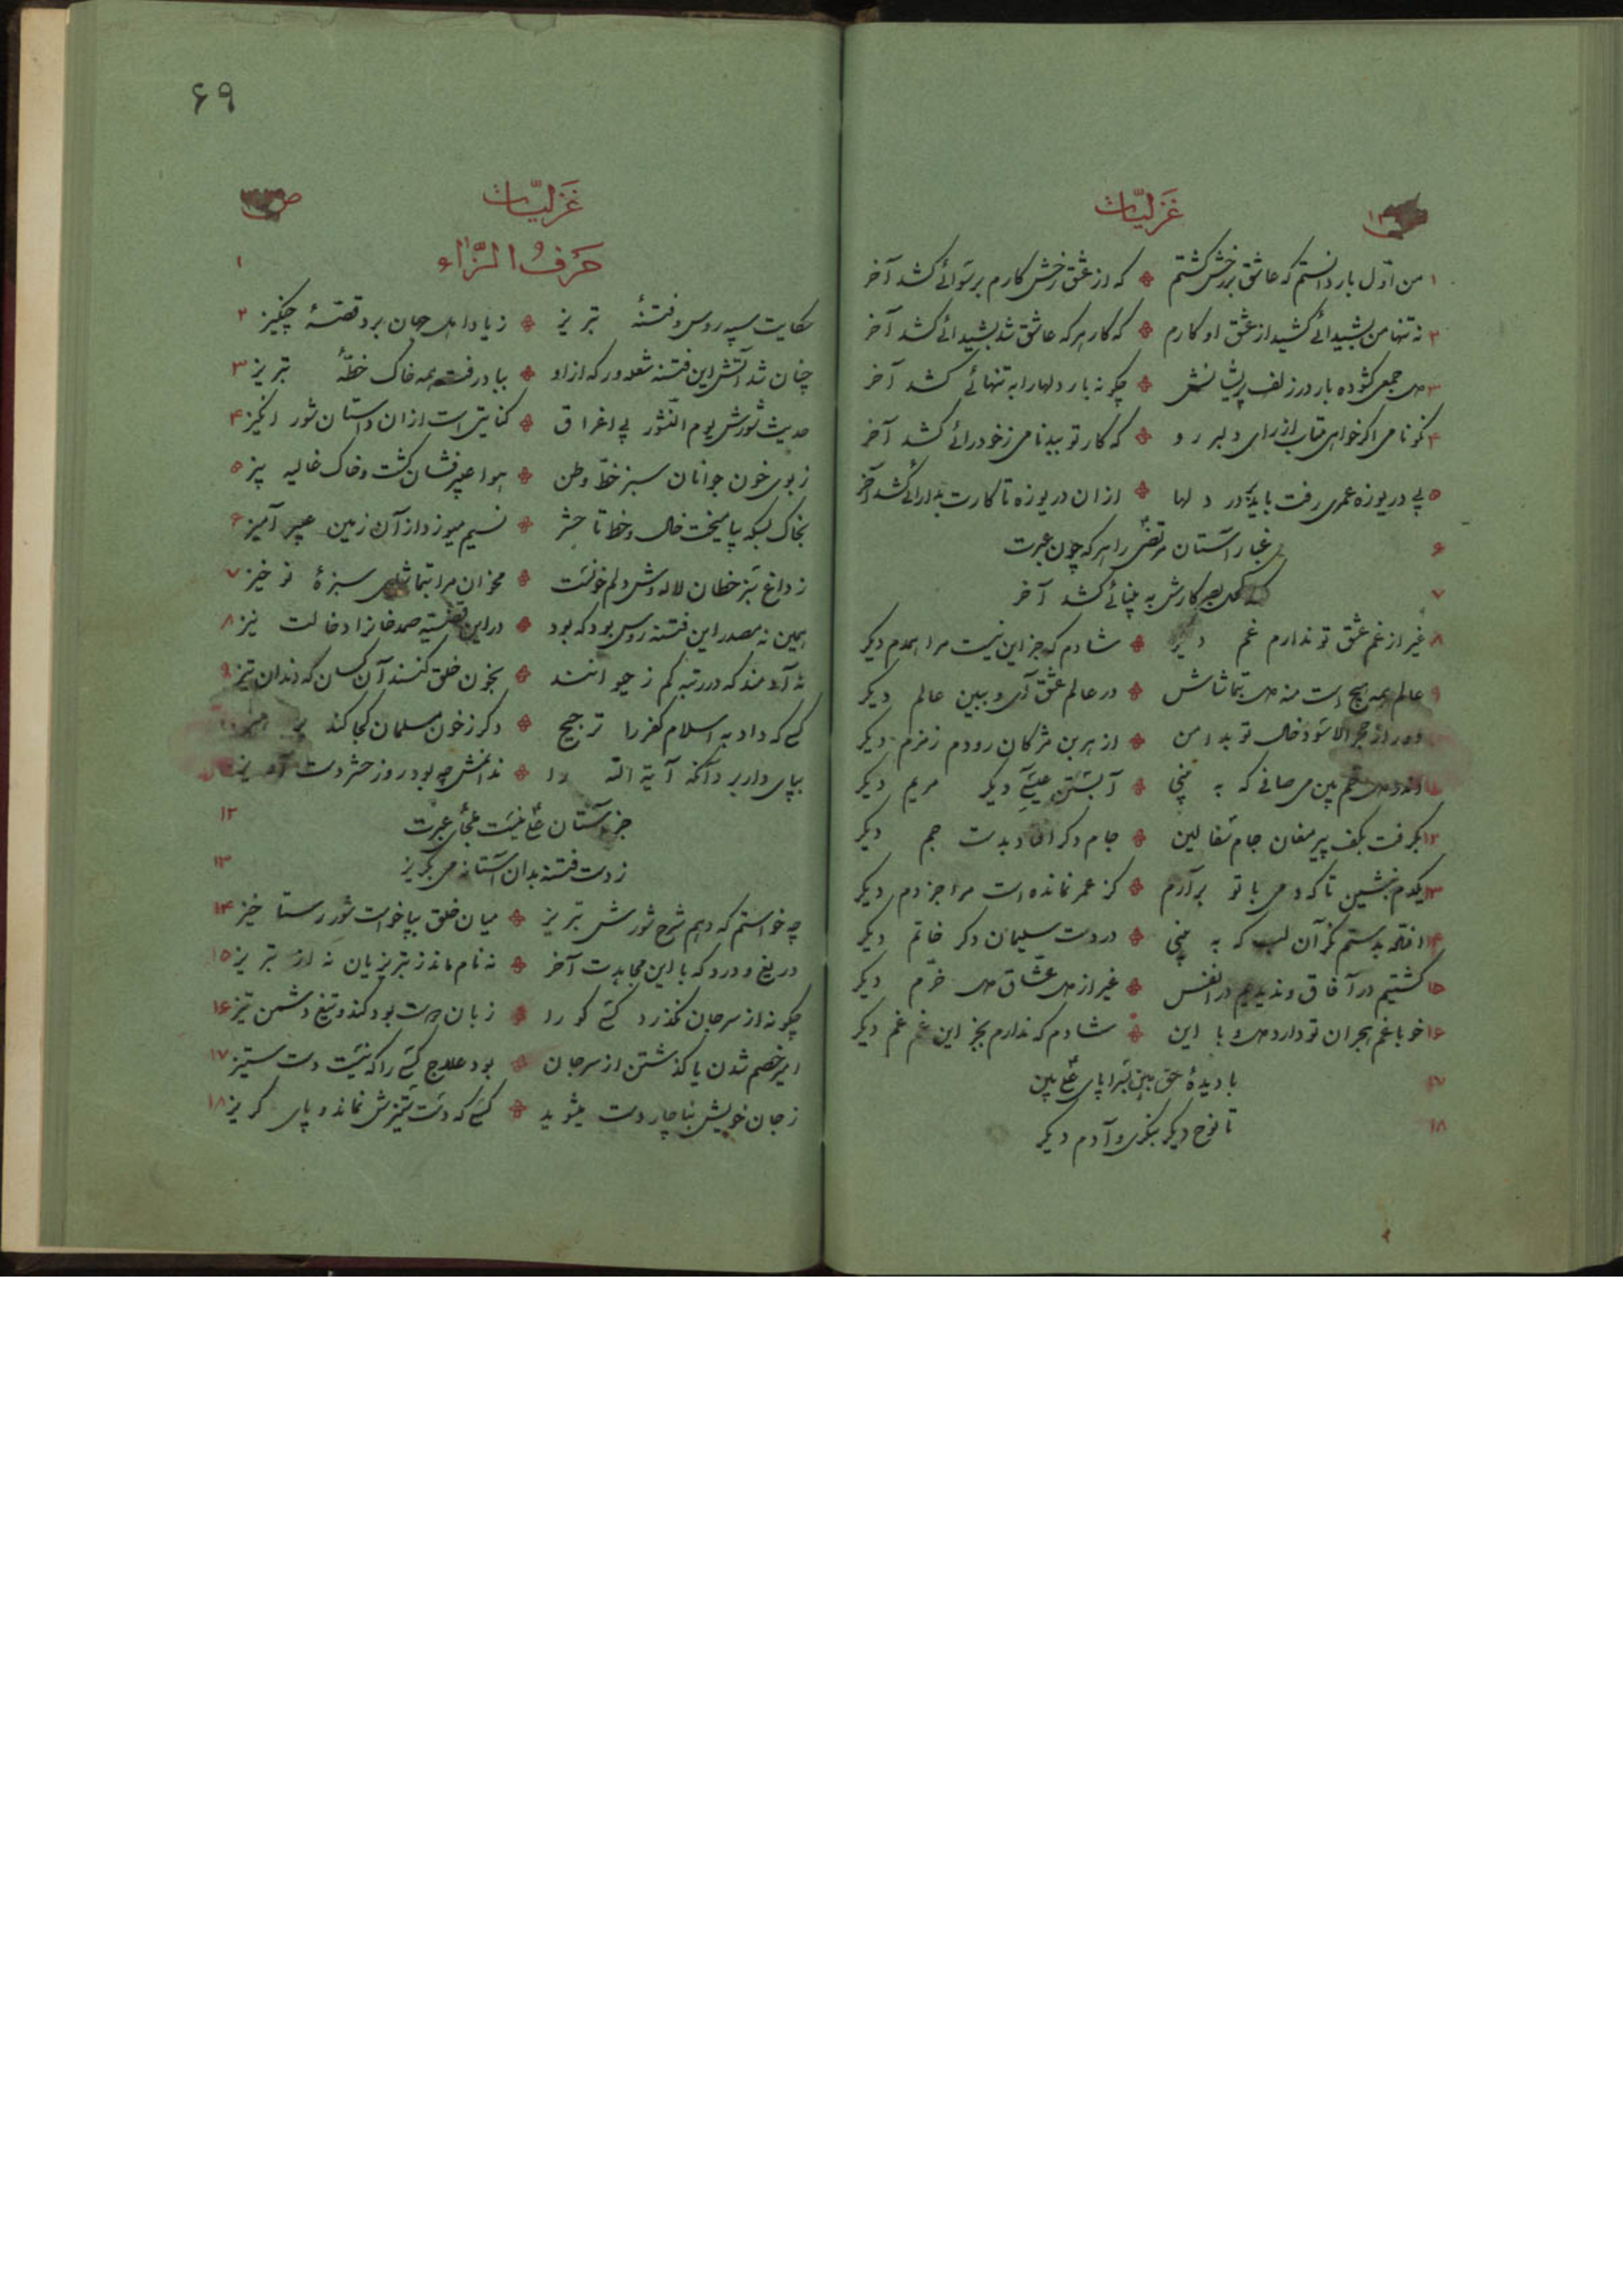 غزلیّات
۱ من اوّل بار دانستم که عاشق بر رخش گشتم که از عشق رخش کارم برسوائی کشد آخر
۲ نه تنها من بشیدائی کشید از عشق او کارم که کار هر که عاشق شد بشیدائی کشد آخر
۳ دل جمعی گشوده بار در زلف پریشانش چگونه بار دلها را به تنهائی کشد آخر
۴ نکونامی اگر خواهی متاب از رای دلبر رو که کار تو ببدنامی ز خودرائی کشد آخر
۵ پی دریوزه عمری رفت باید بر در دلها از ان دریوزه تا کارت بدارائی کشد آخر
۶ غبار آستان مرتضی را هر که چون عبرت
۷ کند کحل بصر کارش به بینائی کشد آخر
۸ غیر از غم عشق تو ندارم غم دیگر شادم که جز این نیست مرا همدم دیگر
۹ عالم همه هیچ است منه دل بتماشاش در عالم عشق آی و ببین عالم دیگر
دور از حجر الاسود خال تو بدامن از هر بن مژگان رودم زمزم دیگر
خم بین می صافی که به بینی آبستن عیسی دیگر مریم دیگر
۱۲ بگرفت بکف پیر مغان جام سفالین جام دگر افتاد بدست جم دیگر
۱۳ یکدم بنشین تا که دمی با تو برآرم کز عمر نمانده است مرا جز دم دیگر
۱۴ افتد بدستم مگر آن لب که به بینی در دست سلیمان دگر خاتم دیگر
۱۵ گشتیم در آفاق و ندیدیم در انفس غیر از دل عشّاق دل خرّم دیگر
۱۶ خو با غم هجران تو دارد دل و با این شادم که ندارم بجز این غم غم دیگر
۱۷ با دیدهٔ حق بین بسراپای علی بین
۱۸ تا نوح دیگر بنگری و آدم دیگر
۶۹
غزلیّات
۱ حَرفُ الزّاء
۲ حکایت سپه روس و فتنهٔ تبریز ز یاد اهل جهان برد قصّهٔ چنگیز
۳ چنان شد آتش این فتنه شعله‌ور که از او بباد رفت همه خاک خطّهٔ تبریز
۴ حدیث شورش یوم النّشور بی اغراق کنایتی است از ان داستان شور انگیز
۵ ز بوی خون جوانان سبز خطّ وطن هوا عبیر فشان گشت و خاک غالیه بیز
۶ بخاک بسکه بیامیخت خال و خط تا حشر نسیم میوزد از آن زمین عبیر آمیز
۷ ز داغ سبز خطان لاله وش دلم خونست مخوان مرا بتماشای سبزهٔ نو خیز
۸ همین نه مصدر این فتنه روس بود که بود در این قضیّه صمد خانرا دخالت نیز
۹ نه آدمند که در رتبه کم ز حیوانند بخون خلق کنند آن کسان که دندان تیز
کسی که داد به اسلام کفر را ترجیح دگر ز خون مسلمان کجا کند پرهیز
بپای دار برد آنکه آیة الله را ندانمش چه بود روز حشر دست آویز
۱۲ جز آستان علی نیست ملجأی عبرت
۱۳ ز دست فتنه بدان آستانه می بگریز
۱۴ چه خواستم که دهم شرح شورش تبریز میان خلق بپا خواست شور رستاخیز
۱۵ دریغ و درد که با این مجاهدت آخر نه نام ماند ز تبریزیان نه از تبریز
۱۶ چگونه از سر جان نگذرد کسی کو را زبان دوست بود کند و تیغ دشمن تیز
۱۷ اسیر خصم شدن یا گذشتن از سر جان بود علاج کسی را که نیست دست ستیز
۱۸ ز جان خویش بناچار دست میشوید کسی که دست ستیزش نماند و پای گریز